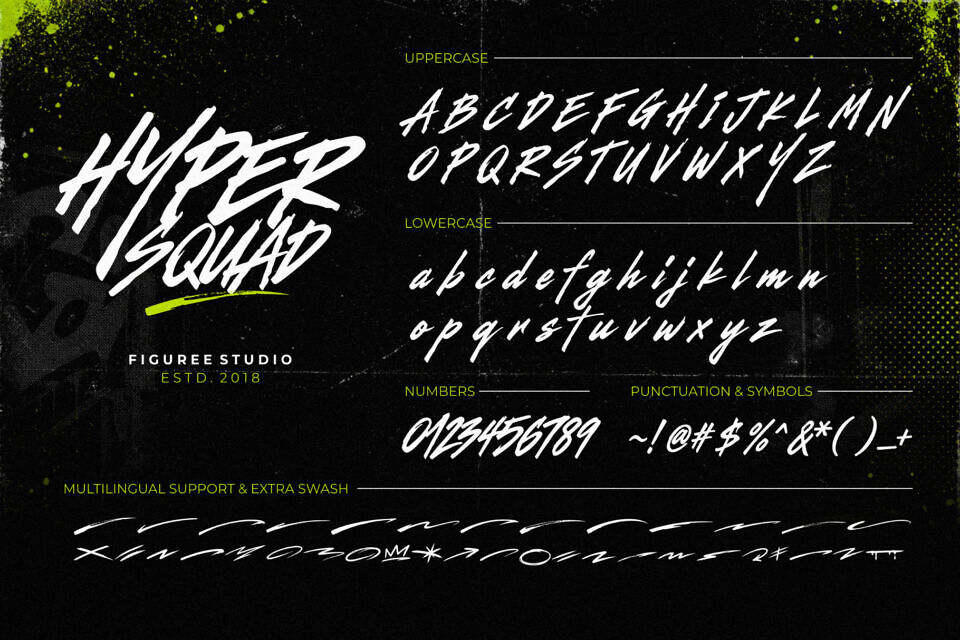 HYPER
SQUAD
FIGUREE STUDIO
ESTD. 2018
UPPERCASE
ABCDEFGHiJKLMN
OPQRSTUVWXYZ
LOWERCASE
abcdefghijklmn
opqrstuvwxyz
NUMBERS
0123456789
PUNCTUATION & SYMBOLS
~!@#$%^&*()_+
MULTILINGUAL SUPPORT & EXTRA SWASH